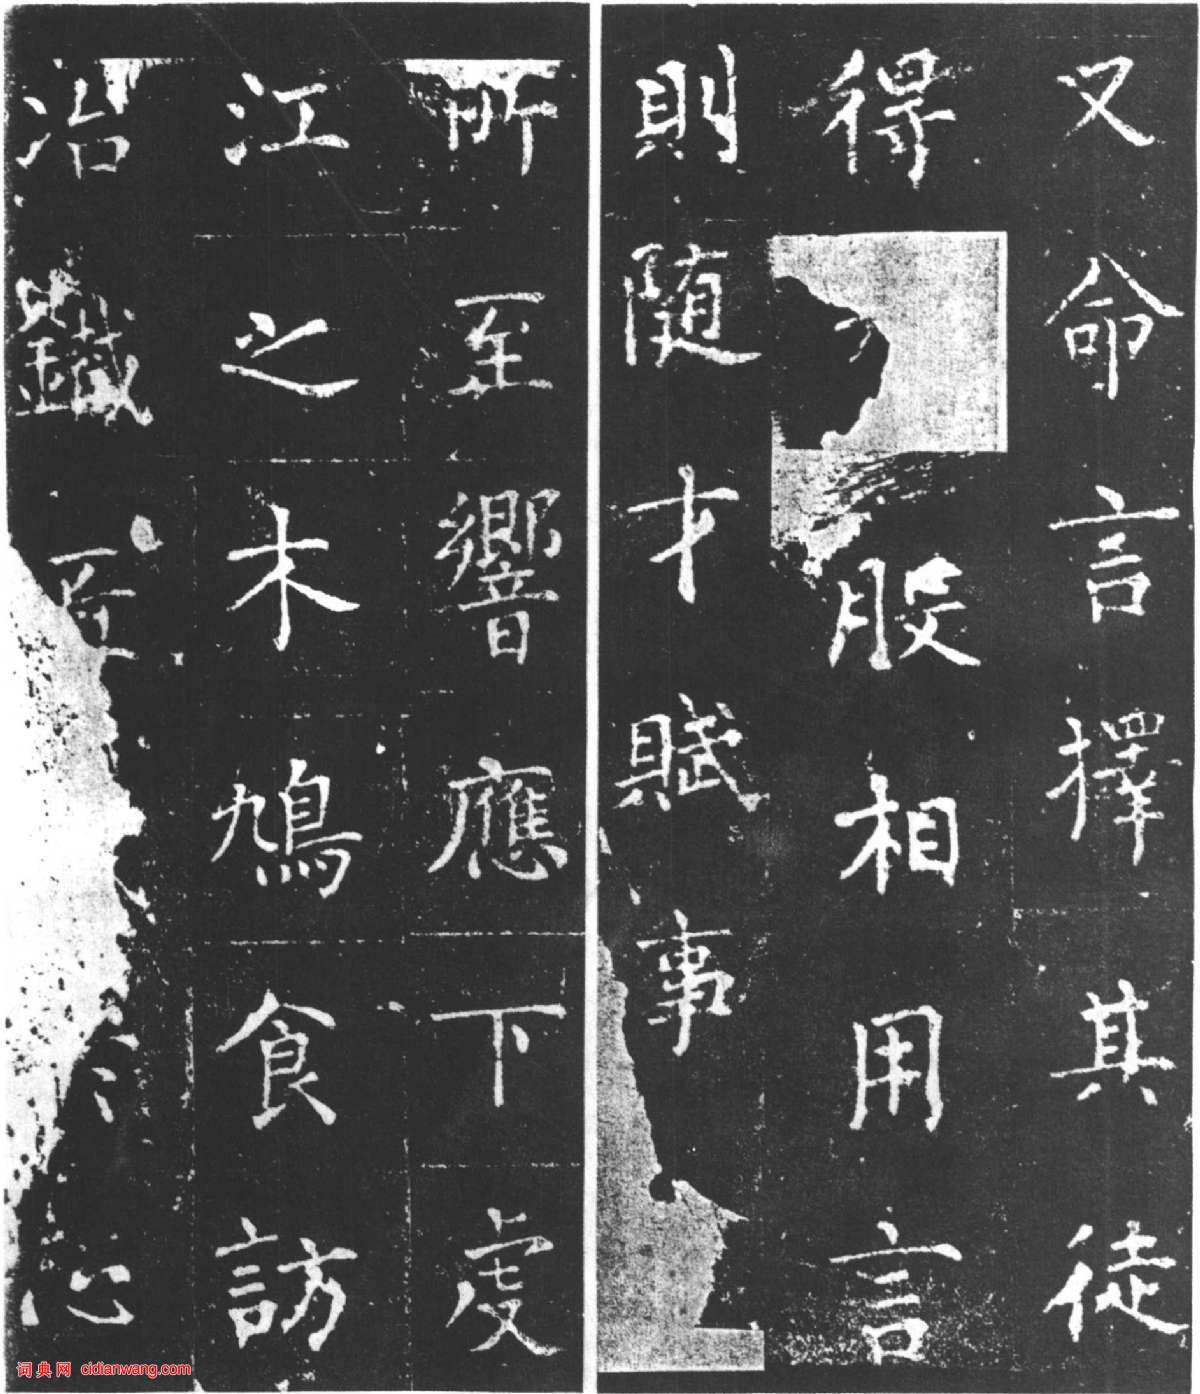 又命言擇其徒
得股相用言
則随才賦事
所至響應下虔
江之木鳩食訪
冶鐵至心
词典网 cidianwang.com